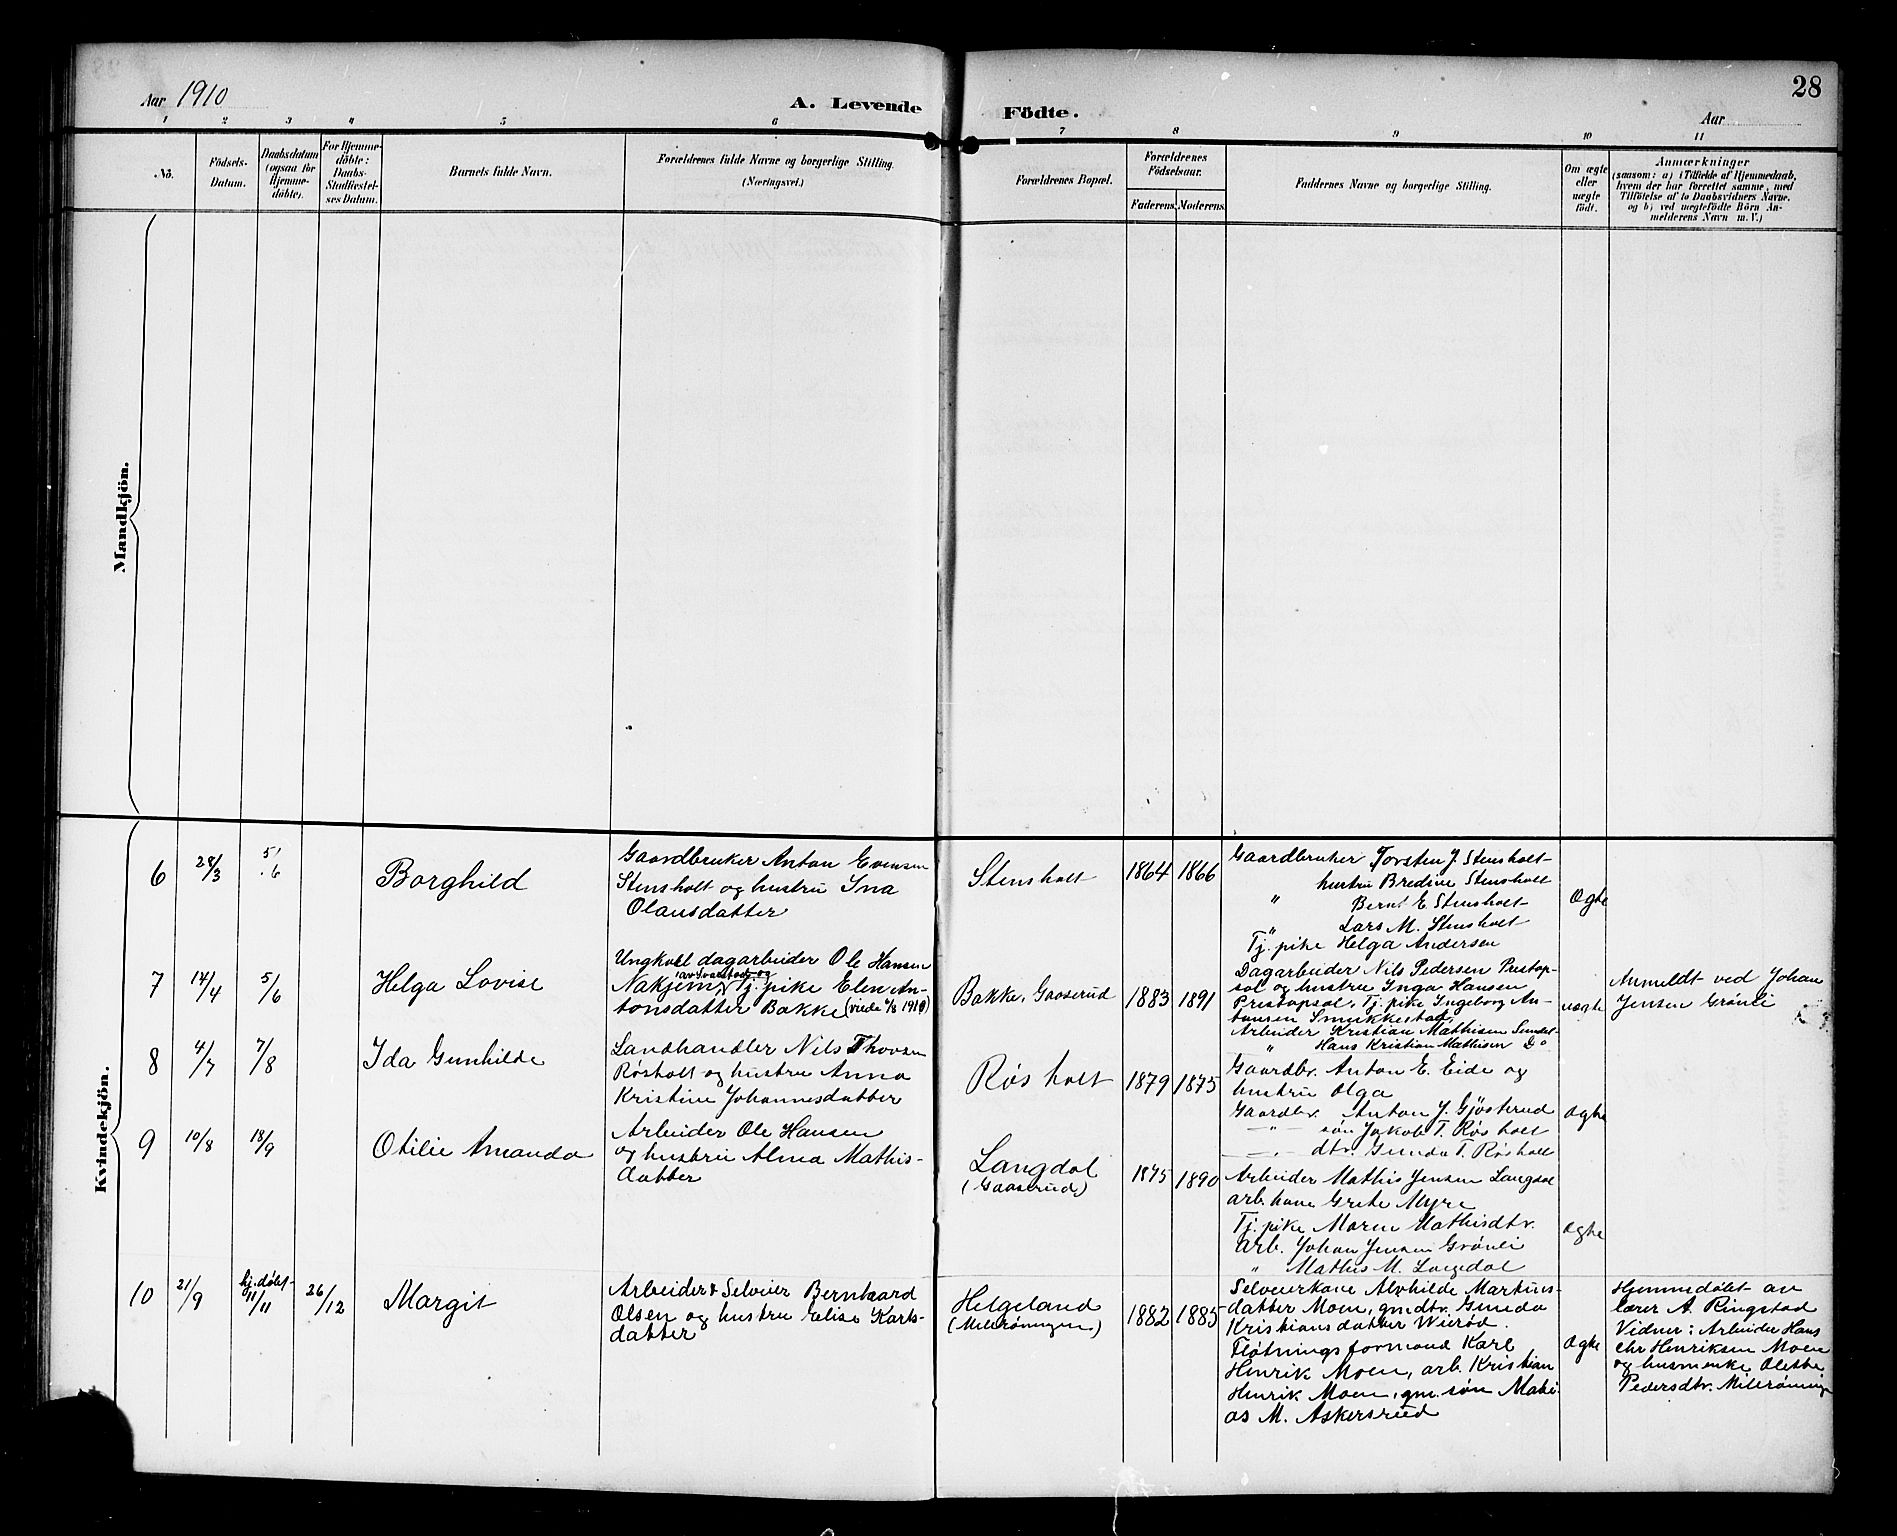 28
Aar 1910
A. Levende Födte.
Aar
1 2 3 4 5 6 7 8 9 10 11
Nö.
Födsels-
Datum.
Daabsdatum
(ogsaa for
Hjemme-
döbte).
For Hjemme-
döbte:
Daabs-
Stadfæstel-
ses Datum.
Barnets fulde Navn.
Forældrenes fulde Navne og borgerlige Stilling.
(Næringsvei.)
Forældrenes Bopæl.
Forældrenes
Födselsaar.
Faderens.
Moderens.
Faddernes Navne og borgerlige Stilling.
Om ægte
eller
uægte
födt.
Anmærkninger
(saasom: a) i Tilfælde af Hjemmedaab,
hvem der har forrettet samme, med
Tilföielse af to Daabsvidners Navne.
og b) ved uægtefödte Börn An-
melderens Navn m. V.)
Mandkjön.
Kvindekjön.
6
28/3
5/6
Borghild
Gaardbruker Anton Evensen
Stensholt og hustru Ina
Olausdatter
Stensholt
1864
1866
Gaardbruker Torsten J. Stensholt
hustru Bredine Stensholt
" Bernt E. Stensholt
" Lars M. Stensholt
Tj. pike Helga Andersen
Ægte
7
14/4
5/6
Helga Lovise
Ungkarl dagarbeider Ole Hansen
Nakjem av Svarstad og Tj. pike Elen An-
tonsdatter Bakke (viede 1/8 1910)
Bakke, Gaaserud
1883
1891
Dagarbeider Nils Pedersen Prestop-
sal og hustru Inga Hansen
Prestopsal, Tj. pike Ingeborg An-
tonsen Smukkestad,
Arbeider Kristian Mathisen
" Hans Kristian Mathisen Do
uægte
Anmeldt ved Johan
Jensen Grönli
8
4/7
7/8
Ida Gunhilde
Landhandler Nils Thovsen
Røsholt og hustru Anna
Kristine Johannesdatter
Røsholt
1879
1875
Gaardbr. Anton E. Eide og
hustru Olga
Gaardbr. Anton J. Gjøsterud
—"— søn Jakob T. Røsholt
—"— dtr. Gunda T. Røsholt
Ægte
9
10/8
18/9
Otilie Amanda
Arbeider Ole Hansen
og hustru Alma Mathis-
datter
Langdal
(Gaaserud)
1875
1890
Arbeider Mathis Jensen Langdal
arb. kone Grete Myre
Tj. pike Maren Mathisdtr.
Arb. Johan Jensen Grönli
" Mathis M. Langdal
Ægte
10
21/9
hj. døbt
11/11
26/12
Margit
Arbeider & Selveier Bernhaard
Olsen og hustru Elise Karls-
datter
Helgeland
(Milerøningen)
1882
1885
Selveierkone Alvhilde Markus-
datter Moen, gmdtr. Gunda
Kristiansdatter Wierød.
Fløtningsformand Karl
Henrik Moen, arb. Kristian
Henrik Moen, gm. søn Mathi-
as M. Askersrud
Ægte
Hjemmedøbt av
lærer A. Ringstad
Vidner: Arbeider Hans
Chr Henriksen Moen
og husmenke Olette
Pedersdtr. Milerøning